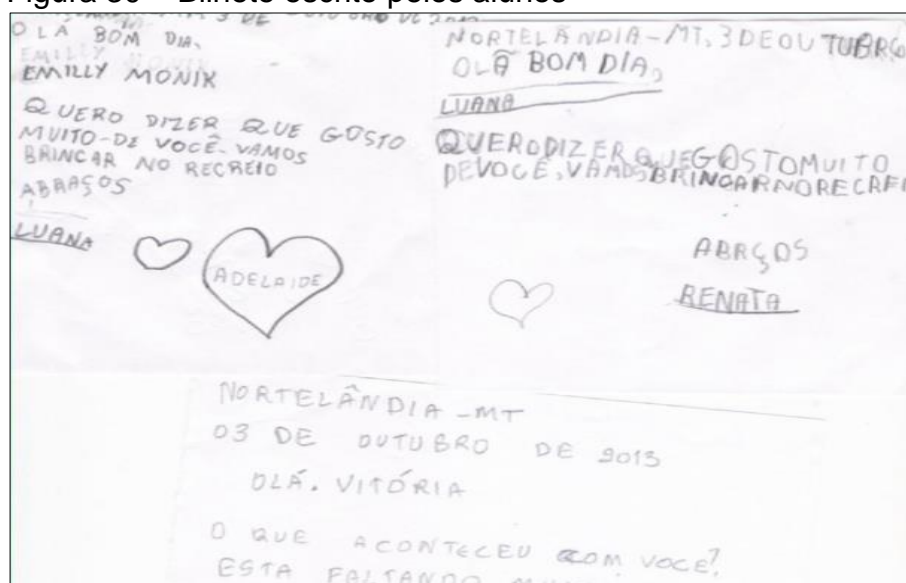 Bilhete escrito pelos alunos
3 DE OUTUBRO DE
OLA BOM DIA.
EMILLY MONIX
EMILLY MONIX
QUERO DIZER QUE GOSTO
MUITO-DE VOCÊ-VAMOS
BRINCAR NO RECREIO
ABRAÇOS
LUANA
ADELAIDE
NORTELÂNDIA-MT, 3 DEOUTUBRO
OLÃ BOM DIA,
LUANA
QUERODIZERQUEGOSTOMUITO
DEVOCÊ, VAMOSBRINCARNORECREI
ABRÇOS
RENATA
NORTELÂNDIA-MT
03 DE OUTUBRO DE 2013
OLÁ. VITÓRIA
O QUE ACONTECEU COM VOCÊ?
ESTA FALTANDO